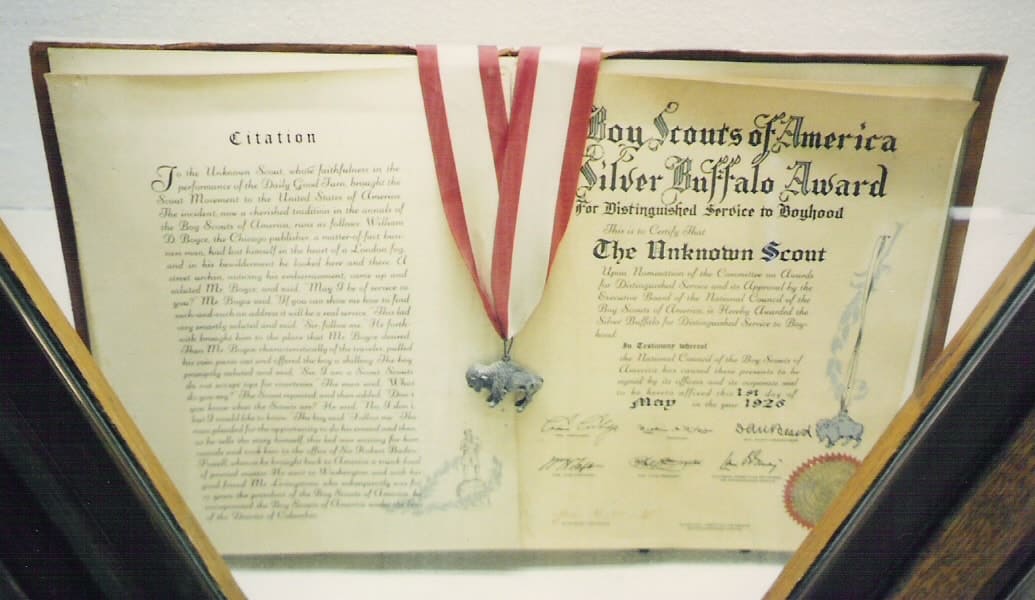 Citation
To the Unknown Scout, whose faithfulness in the
performance of the Daily Good Turn, brought the
Scout Movement to the United States of America
The incident, now a cherished tradition in the annals of
the Boy Scouts of America, runs as follows: William
D. Boyce, the Chicago publisher, a matter-of-fact busi-
ness man, had lost himself in the heart of a London fog,
and in his bewilderment he looked here and there. A
street urchin, noticing his embarrassment, came up and
saluted Mr. Boyce, and said, "May I be of service to
you?" Mr. Boyce said, "If you can show me how to find
such-and-such an address it will be a real service." This lad
very smartly saluted and said, "Sir, follow me." He forth-
with brought him to the place that Mr. Boyce desired.
Then Mr. Boyce characteristically of the traveler, pulled
his coin purse out and offered the boy a shilling. The boy
promptly saluted and said, "Sir, I am a Scout. Scouts
do not accept tips for courtesies." The man said, "What
do you say?" The Scout repeated, and then added, "Don't
you know what the Scouts are?" He said, "No, I don't,
but I would like to know." The boy said, "Follow me." The
man
he tells the story himself, this lad was waiting for him
outside and took him to the office of Sir Robert Baden-
Powell, where he brought back to America a trunk load
of printed matter. He went to Washington and with his
good friend Mr. Livingstone, who subsequently was for
years the president of the Boy Scouts of America, he
incorporated the Boy Scouts of America under the
of the District of Columbia.
Boy Scouts of America
Silver Buffalo Award
For Distinguished Service to Boyhood
This is to Certify That
The Unknown Scout
Upon Nomination of the Committee on Awards
for Distinguished Service and its Approval by the
Executive Board of the National Council of the
Boy Scouts of America, is Hereby Awarded the
Silver Buffalo for Distinguished Service to Boy-
hood.
In Testimony whereof
the National Council of the Boy Scouts of
America has caused these presents to be
signed by its officers and its corporate seal
to be hereto affixed this 1st day of
May in the year 1926
Dan Beard